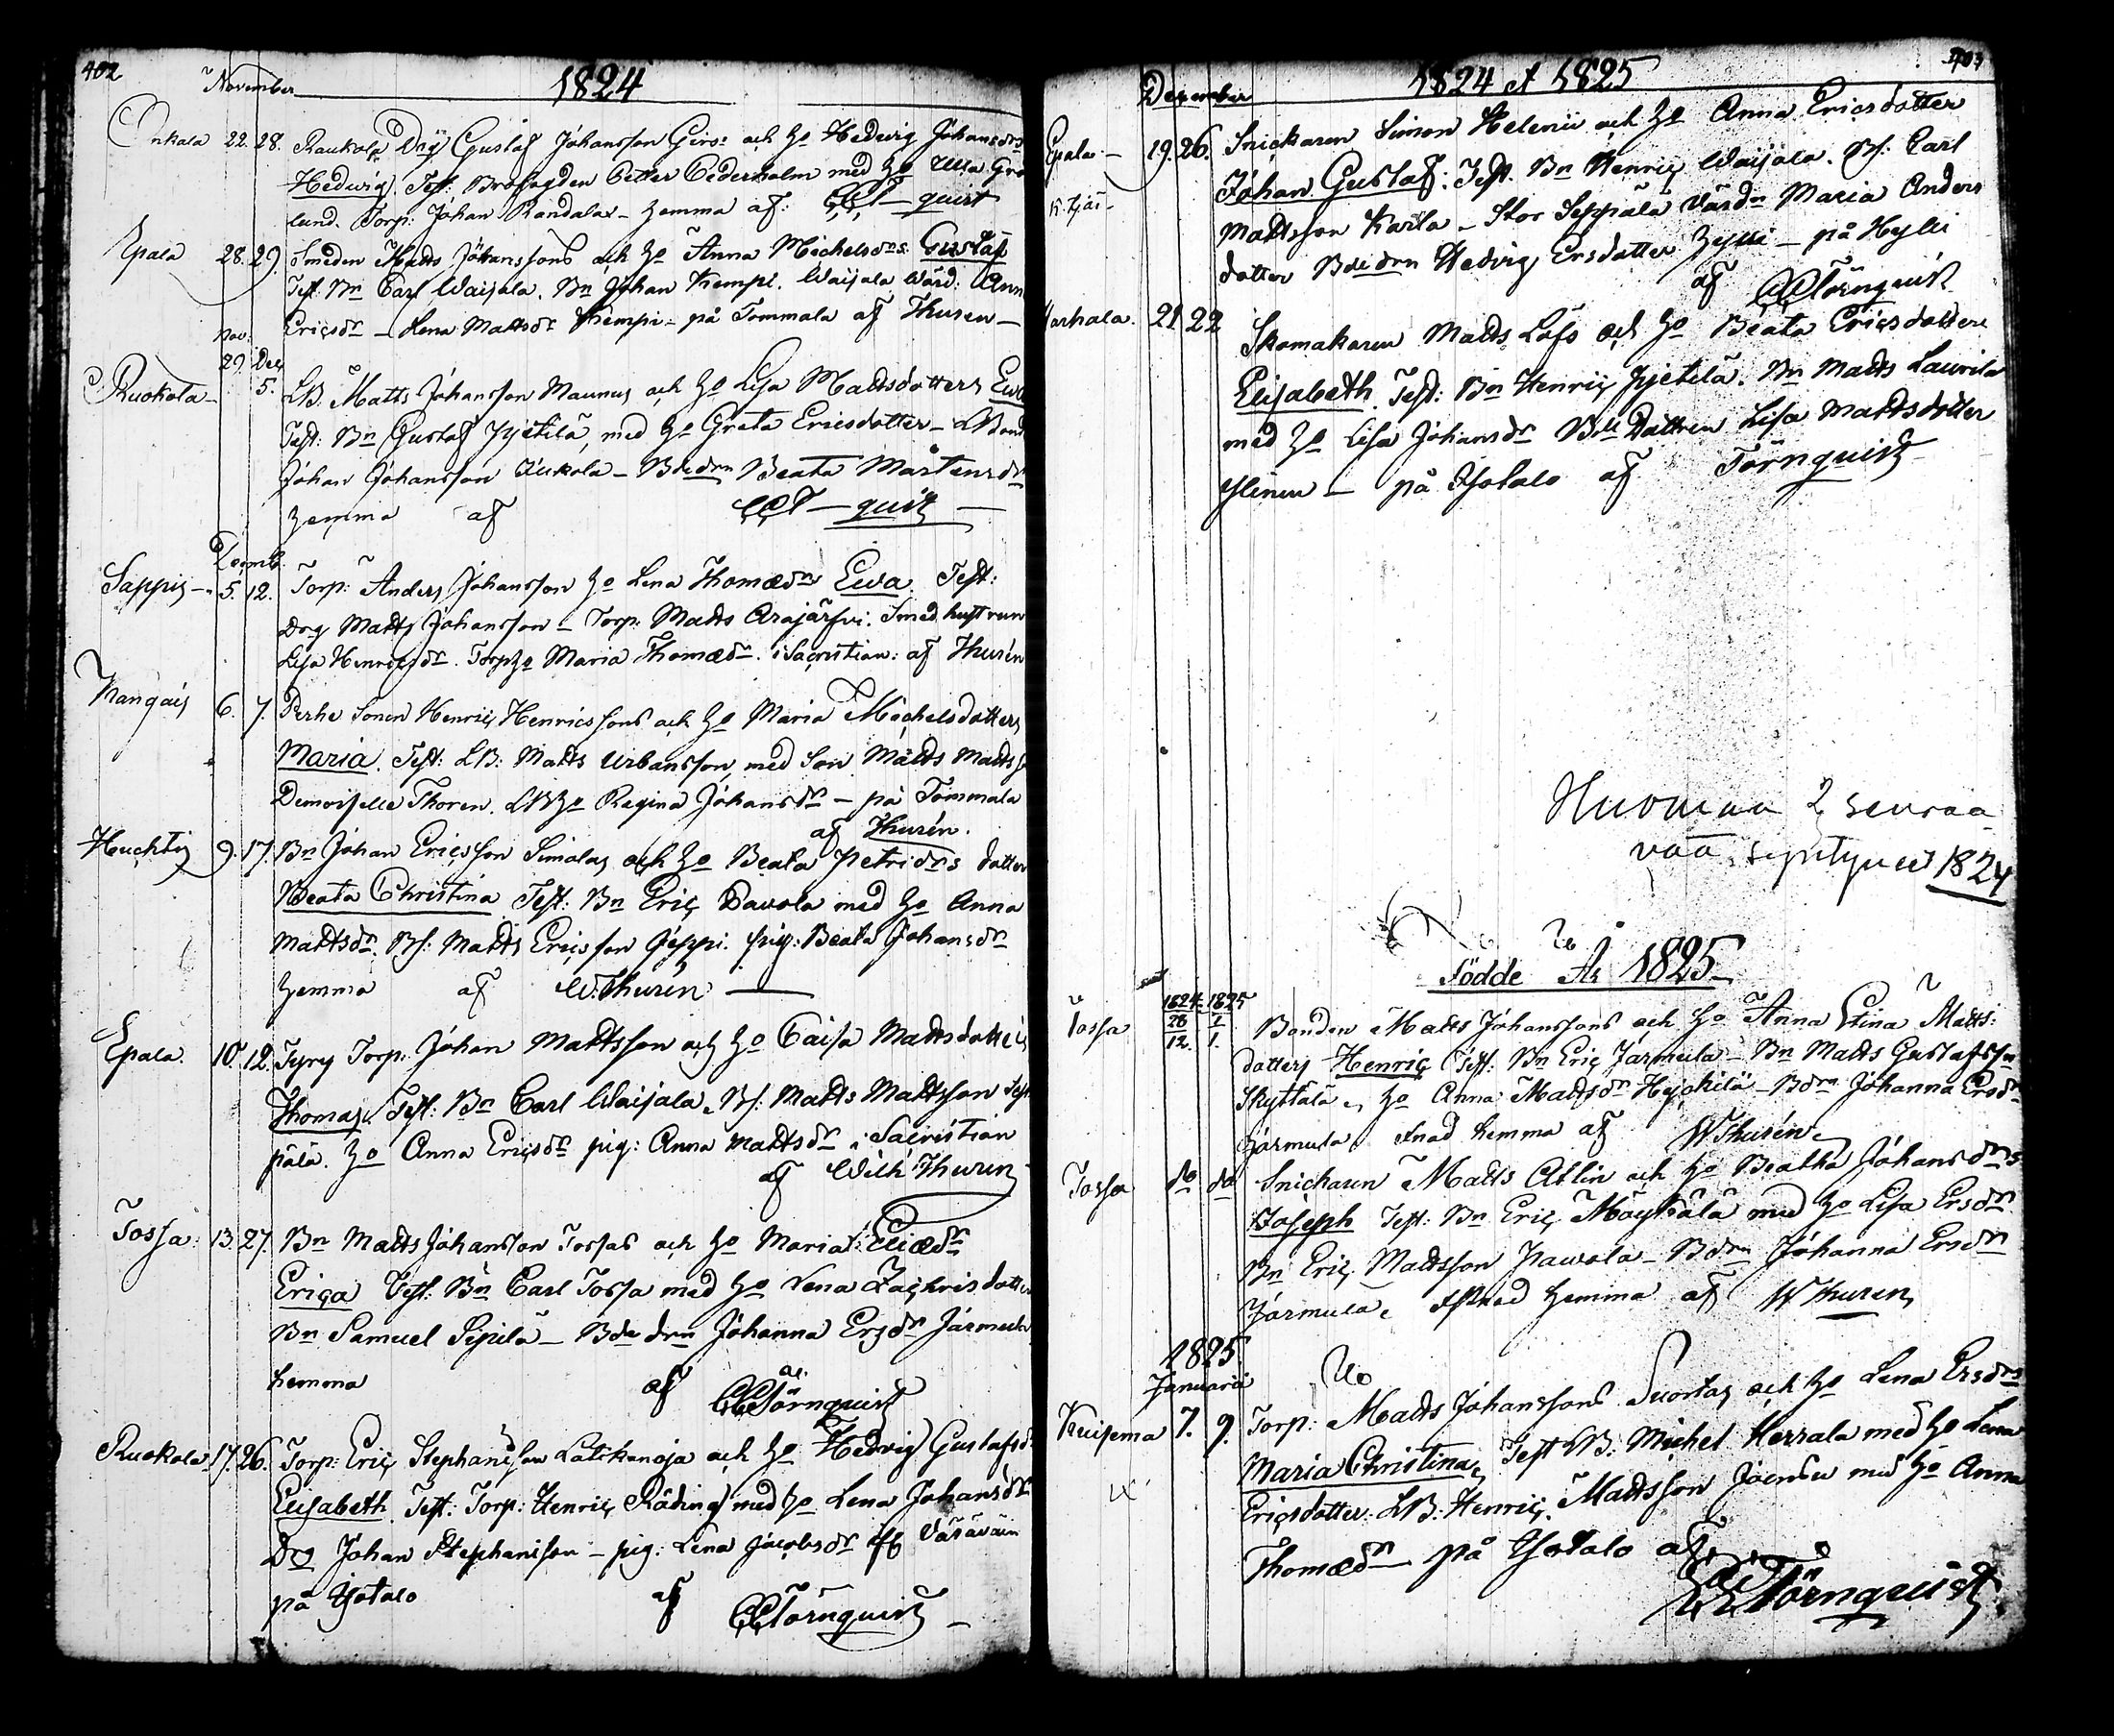 402
November 1824
Onkala 22. 28. Raukola Drg Gustaf Johansson Girs: och H:o Hedwig Johansdrs
Hedwig. Test: Brofogden Petter Cederholm med H:o Ulla Grö
lund. Torp: Johan Randalax - Hemma af: CCT-quist
Epala 28. 29. Smeden Matts Johanssons och H:o Anna Michelsdrs Gustaf
Test: Bn Carl Waijala. Bn Johan Kempi. Waijala Wärd: Ann
Nov: Ericsdr - Lena Mattsdr Kempi - på Tommala af Thuren -
29 Dec
Ruokola - 5. LB. Matts Johansson Maunus och H:o Lisa Mattsdotters Ewa
Test: Bn Gustaf Jyetilä med H:o Greta Ericsdotter - LBond
Johan Johansson Juckola - Bdedrn Beata Mårtensdr
Hemma af CCT-quist -
Decemb.
Sappis - 5. 12. Torp: Anders Johansson H:o Lena Thomædrs Ewa. Test:
Drg Matts Johansson - Torp: Matts Arajärfvi. Smed hustrun
Lisa Henricsdr. Torp H:o Maria Thomædr. i Sacristian: af Thurén
Kangais 6. 7. Perhe Sonen Henric Henricssons och H:o Maria Michelsdotters
Maria. Test: LB: Matts Urbansson, med Son Matts Matts
Demoiselle Thoren. LB H:o Regina Johansdr - på Tommala
af Thurén.
Huchtis 9. 17. Bn Johan Ericsson Simolas och H:o Beata Petridrs dotter
Beata Christina Test: Bn Eric Pavola med H:o Anna
Mattsdr. Bs: Matts Ericsson Jeppi. pig: Beata Johansdr
Hemma af W. Thurén -
Epala. 10. 12. Tyry Torp: Johan Mattsson och H:o Caisa Mattsdotters
Thomas. Test: Bn Carl Waijala. Bs: Matts Mattsson Sep
pälä. H:o Anna Ericsdr pig: Anna Mattsdr i Sacristian
af Wilh. Thuren
Tossa: 13. 27. Bn Matts Johansson Tossas och H:o Maria Eliædr
Erica Test: Bn Carl Tossa med H:o Lena Zachrisdotter
Bn Samuel Sipilä - Bdedrn Johanna Ersdr Jarmula
hemma af CCTörnquist
Ruokola. 17. 26. Torp: Eric Stephansson Latikanoja och H:o Hedvig Gustafsdr
Elisabeth Test: Torp: Henric Räding med H:o Lena Johansdr
Drg Johan Stephansson - pig: Lena Jacobsdr
på Isotalo af CCTörnquist -
403
December 1824 et 1825
Epala - 19. 26. Snickaren Simon Helenii och H:o Anna Ericsdotter
Johan Gustaf: Test. Bn Henric Waijala. Bs: Carl
Mattsson Karla - Stor Seppälä Värdn Maria Anders
dotter Bdedrn Hedvig Ersdotter Hylli - på Hylli
af CCTörnquist
Harhala. 21 22 Skomakaren Matts Löfs och H:o Beata Ericsdotters
Elisabeth. Test: Bn Henric Jyetilä. Bn Matts Laurila
med H:o Lisa Johansdr Bde Dottren Lisa Mattsdotter
Ylinen - på Isotalo af Törnquist
Huomaa 2 seuraa
vaa syntyneet 1824
Födde År 1825
Tossa 1824 1825
28 1
12. 1. Bonden Matts Johanssons och H:o Anna Stina Matts:
dotters Henric Test: Bn Eric Jarmula - Bn Matts Gustafsson
Skyttälä, H:o Anna Mattsdr Hyckilä - Bdrn Johanna Ersdr
Jarmula hemma af W Thurén
Tossa do do Snickaren Matts Atlin och H:o Beatha Johansdrs
Joseph Test: Bn Eric Möykälä med H:o Lisa Ersdr
Bn Eric Mattsson Pawola - Bdrn Johanna Ersdr
Jarmula, Hemma af W Thuren,
1825
Januarii
Kuisema 7. 9. Torp: Matts Johanssons Suortas och H:o Lena Ersdrs
Maria Christina, Test LB: Michel Herrala med H:o Lena
Ericsdotter. LB: Henric Mattsson med H:o Anna
Thomædr - på Isotalo af
CCTörnquist